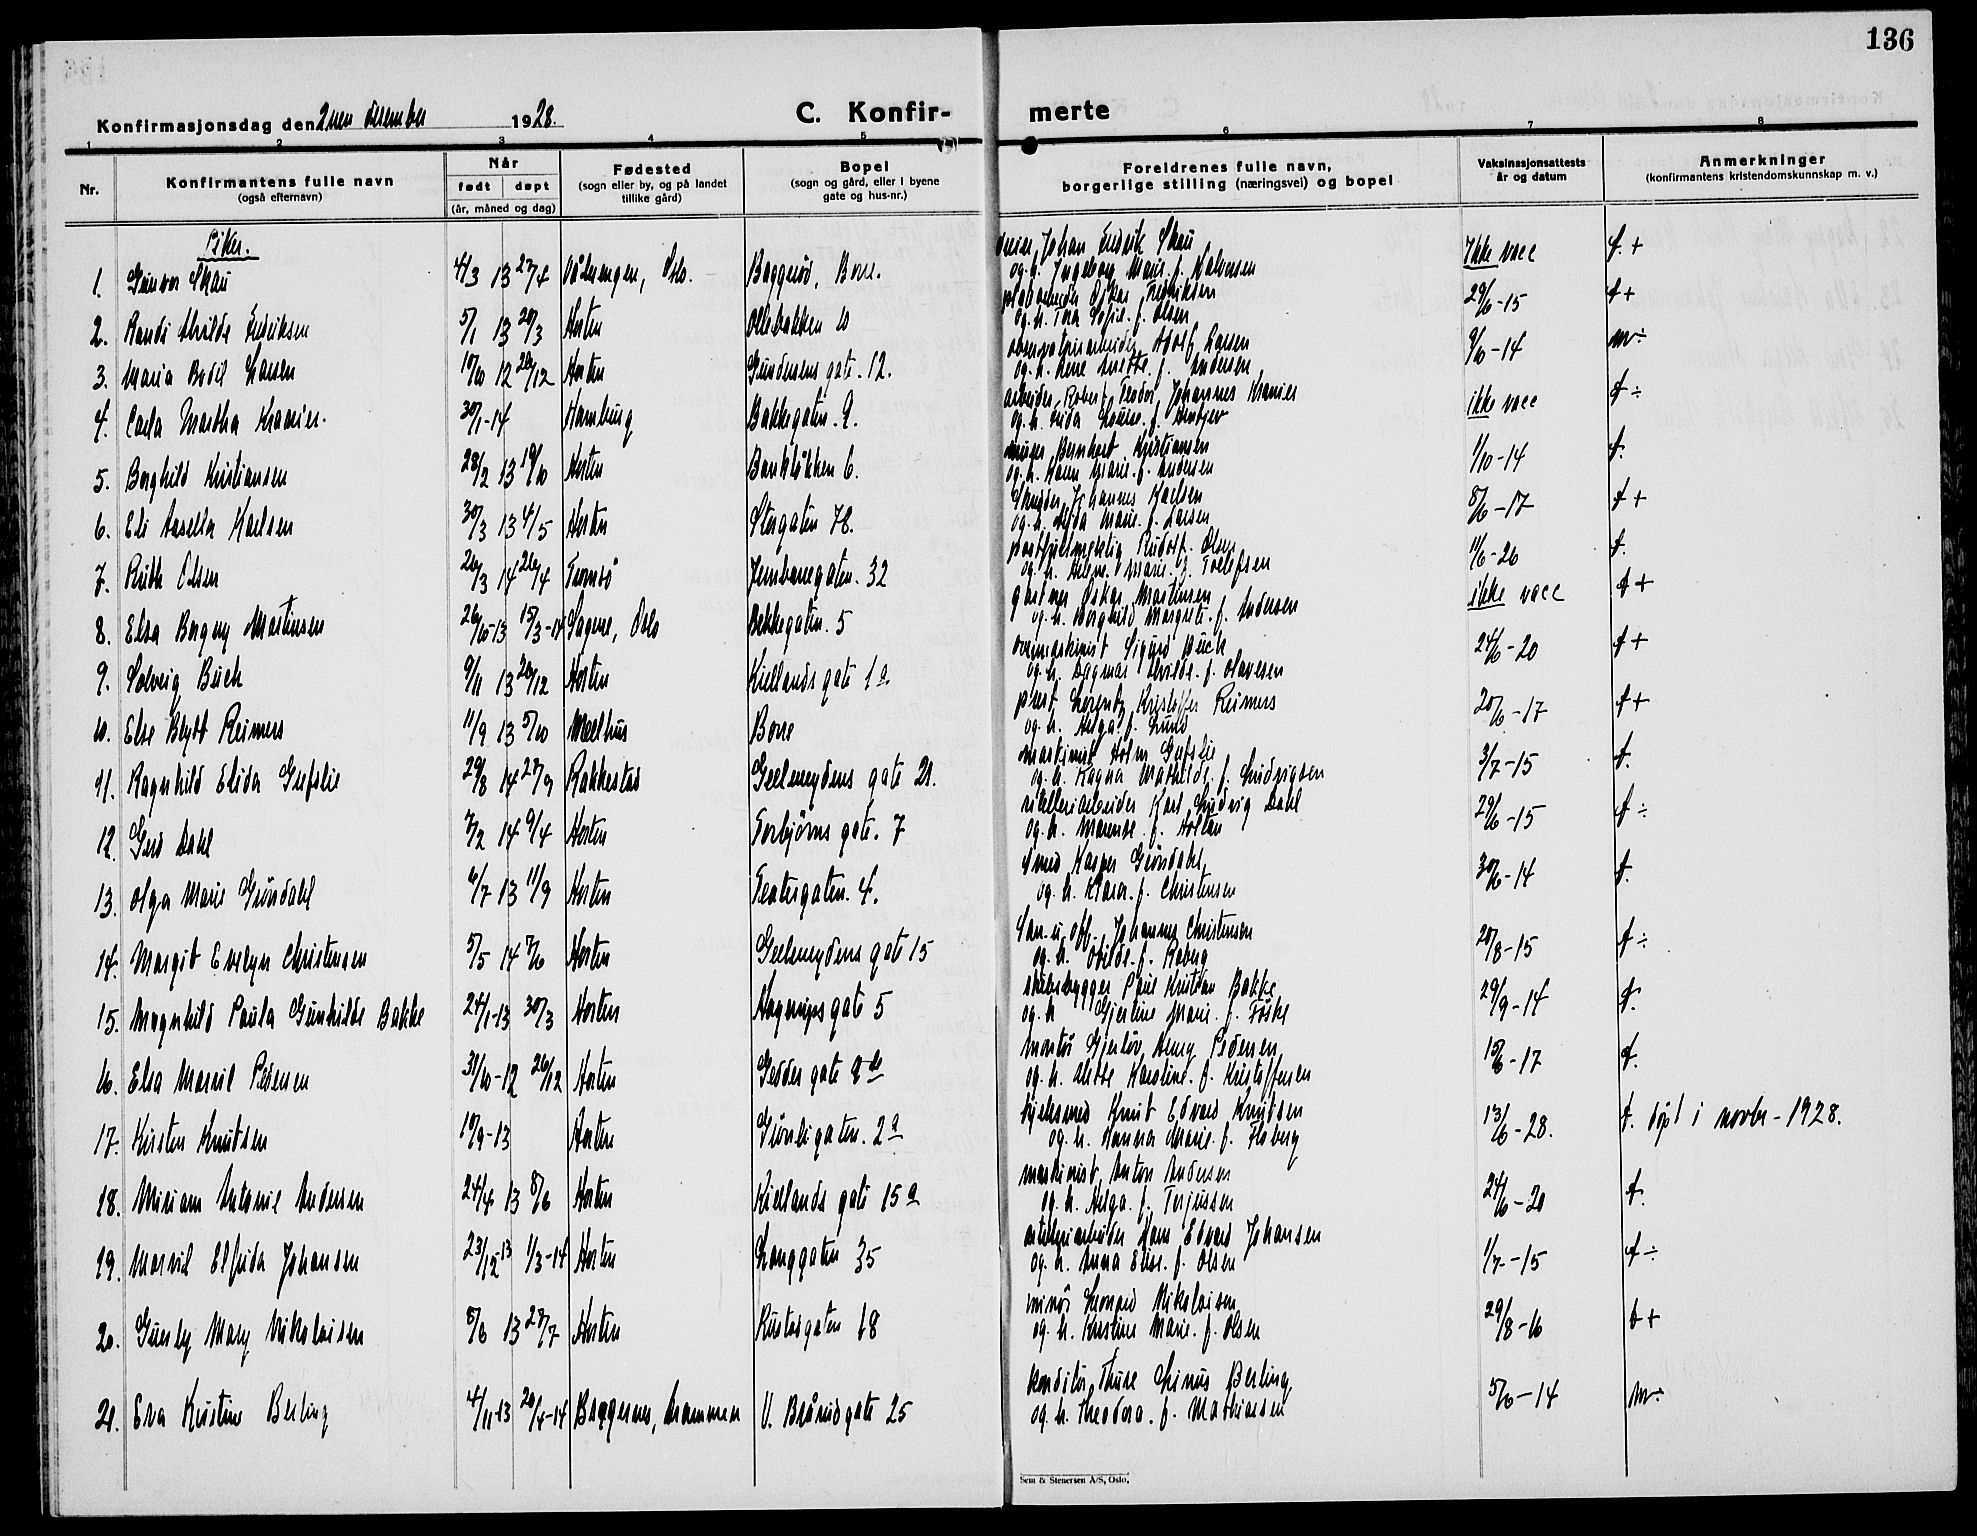 136
Konfirmasjonsdag den 2nen desember 1928. C. Konfir- merte
1 2 3 4 5 6 7 8
Nr. Konfirmantens fulle navn (også efternavn) Når født døpt (år, måned og dag) Fødested (sogn eller by, og på landet tillike gård) Bopel (sogn og gård, eller i byene gate og hus-nr.) Foreldrenes fulle navn, borgerlige stilling (næringsvei) og bopel Vaksinasjonsattests år og datum Anmerkninger (konfirmantens kristendomskunnskap m. v.)
Piker.
Johan Fredrik Skau
1. Gunvor Skau 4/3 13 27/4 Vålerengen, Oslo. Baggerød, Borre. og h. Ingeborg Marie f. Halvorsen Ikke vacc f. +
Oskar Fredriksen
2. Randi Alvilde Fredriksen 5/1 13 20/3 Horten Ollebakken 10 og h. Tora Sofie f. Olsen 29/6-15 f +
Adolf Larsen
3. Maria Bodil Larsen 17/10 12 26/12 Horten Gundersens gate 12. og h. Lene Anette f. Andersen 9/10-14 m ÷
arbeider Robert Teodor Johannes Kramer
4. Carla Martha Kramer. 30/1-14 Hamburg Bakkegaten 9. og h. Frida Louise f. ikke vacc f ÷
murer Bernhart Kristiansen
5. Borghild Kristiansen 28/2 13 19/10 Horten Bankløkken 6. og h. Karen Marie f. Andersen 1/10-14 f.
Skredder Johannes Karlsen
6. Eli Aasella Karlsen 30/3 13 4/5 Horten Storgaten 78. og h. Alida Marie f. Larsen 8/6-17 f +
postfullmektig Rudolf Olsen
7. Ruth Olsen 26/3 14 26/4 Tromsø Jernbanegaten 32 og h. Helene Marie f. Tollefsen 11/6-26 f.
gartner Oskar Martinsen
8. Elsa Borgny Martinsen 26/10-13 15/3-14 Sagene, Oslo Bekkegaten 5 og h. Borghild Margrete f. Andersen ikke vacc f +
overmaskinist Sigurd Buch
9. Solveig Buch 9/11 13 26/12 Horten Kiellands gate 1a og h. Dagmar Alvilde f. Olavesen 24/6-20 f +
prest Lorentz Kristoffer Reimers
10. Else Blytt Reimers 11/9 13 5/10 Melhus Borre og h. Helga f. Lund 20/6-17 f +
maskinist Holm Grefslie
11. Ragnhild Elida Grefslie 29/8 14 27/9 Rakkestad Geelmeydens gate 21. og h. Ragna Mathilde f. Ludvigsen 3/7-15 f.
artilleriarbeider Karl Ludvig Dahl
12. Gerd Dahl 7/2 14 9/4 Horten Torbjørns gate 7 og h. Marense f. Holtan 29/6-15 f ÷
Smed Kasper Grøndahl
13. Olga Marie Grøndahl 6/7 13 11/9 Horten Teatergaten 4. og h. Klara f. Christensen 30/6-14 f.
San. u. off. Johannes Christensen
14. Margit Evelyn Christensen 5/5 14 7/6 Horten Geelmeydens gate 15 og h. Otilde f. Raberg 20/8-15 f ÷
skibsbygger Paul Kristian Bakke
15. Magnhild Paula Gunhilde Bakke 24/1-13 30/3 Horten Haugrups gate 5 og h Gjertine Marie f. Foske 29/9-14 f.
Montør Gjerløv Henry Pedersen
16. Elsa Marvil Pedersen 31/10-12 26/12 Horten Gedder gate 9b og h. Alette Karoline f. Kristoffersen 15/6-17 f.
kjelesmed Knut Edvard Knutsen
17. Kirsten Knutsen 19/9-13 Horten Grønligaten 2a og h. Hanna Marie f. Floberg 13/6-28. f. døpt i novbr - 1928.
maskinist Anton Andersen
18. Miriam Antonie Andersen 24/4 13 8/6 Horten Kiellands gate 15a og h. Helga f. Terjussen 24/6-20 f.
artilleriarbeider Hans Edvard Johansen
19. Marvil Elfrida Johansen 23/12-13 1/3-14 Horten Langgaten 35 og h. Anna Elise f. Olsen 1/7-15 f ÷
minør Leonard Nikolaisen
20. Guerly Mary Nikolaisen 8/6 13 27/7 Horten Rustesgaten 18 og h. Kristine Marie f. Olsen 29/8-16 f +
konditor Thure Linus Berling
21. Eva Kristine Berling 4/11-13 26/4-14 Bragernes, Drammen V. Brårudgate 25 og h. Theodora f. Mathiassen 5/6-14 m ÷
Sem & Stenersen A/S, Oslo.